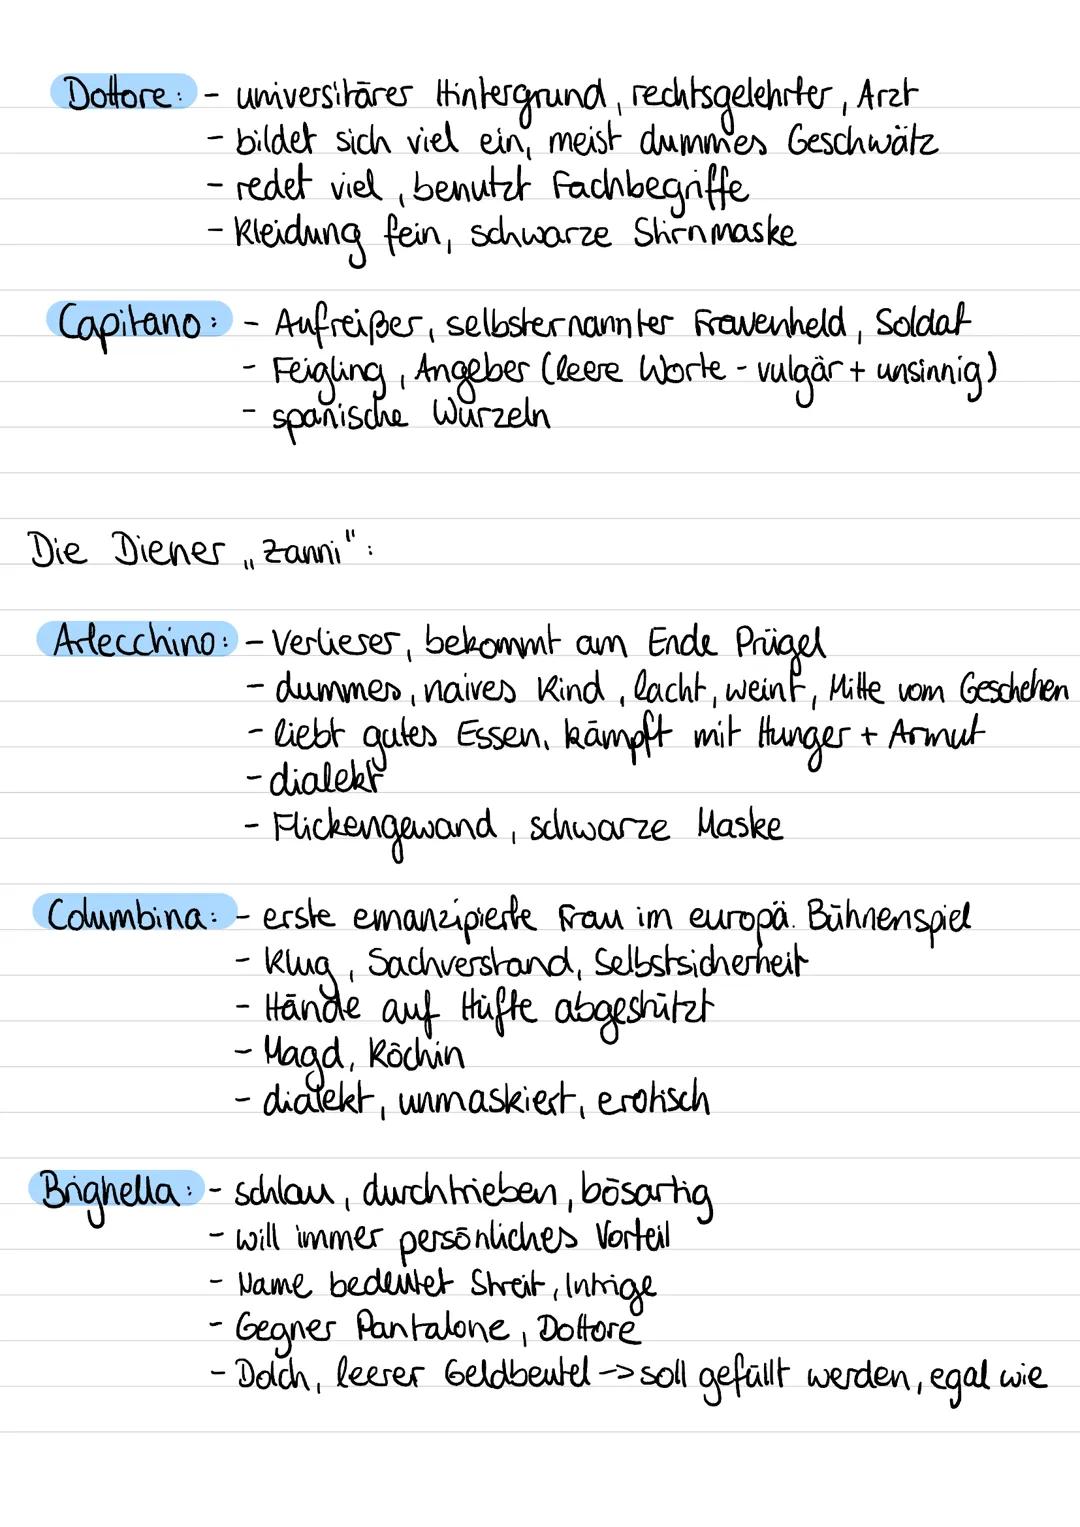 Dottore: - universitärer Hintergrund, rechtsgelehrter, Arzt
- bildet sich viel ein, meist dummes Geschwätz
- redet viel, benutzt Fachbegriffe
- Kleidung fein, schwarze Stirnmaske
Capitano: - Aufreißer, selbsternannter Frauenheld, Soldat
- Feigling, Angeber (leere Worte - vulgär + unsinnig)
- spanische Wurzeln
Die Diener „Zanni":
Arlecchino: - Verlieser, bekommt am Ende Prügel
- dummes, naives Kind, lacht, weint, Mitte vom Geschehen
- liebt gutes Essen, kämpft mit Hunger + Armut
- dialekt
- Flickengewand, schwarze Maske
Columbina: - erste emanzipierte Frau im europä. Bühnenspiel
- Klug, Sachverstand, Selbstsicherheit
- Hände auf Hüfte abgestützt
- Magd, Köchin
- dialekt, unmaskiert, erotisch
Brighella: - schlau, durchtrieben, bösartig
- will immer persönliches Vorteil
- Name bedeutet Streit, Intrige
- Gegner Pantalone, Dottore
- Dolch, leerer Geldbeutel -> soll gefüllt werden, egal wie